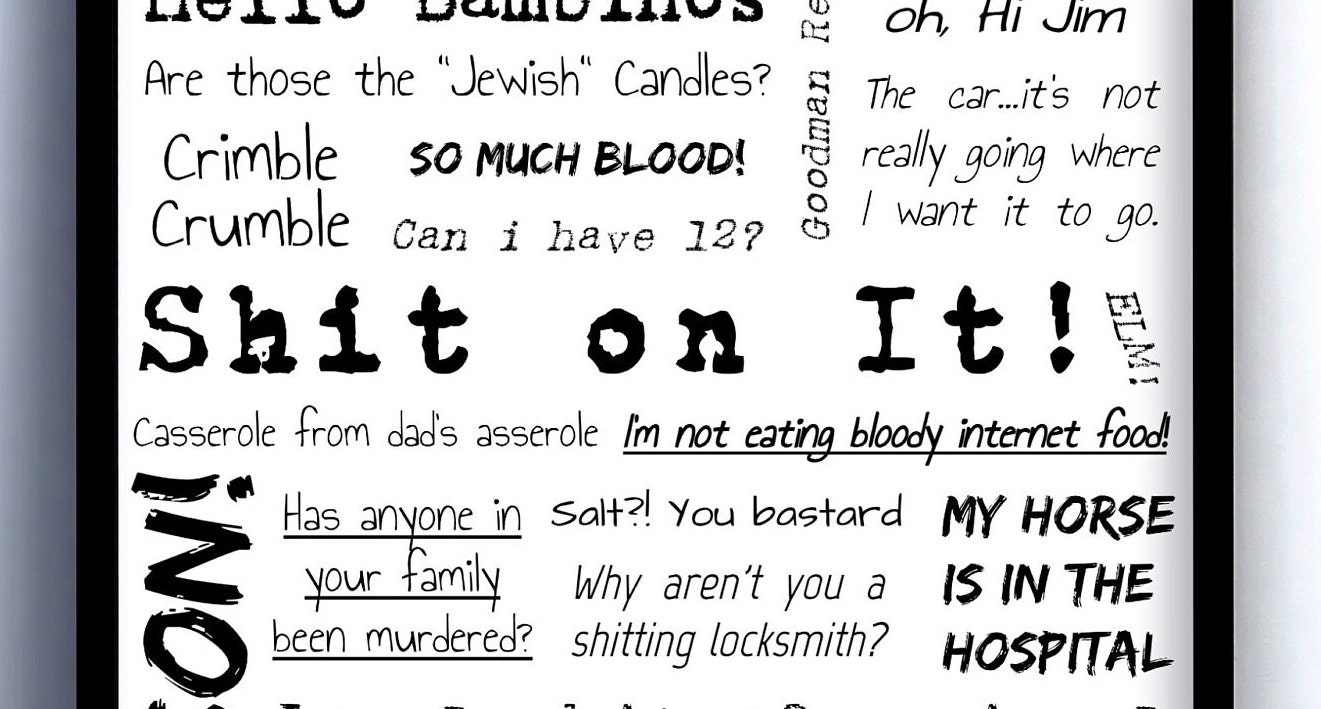 Hello Bambinos
oh, Hi Jim
Goodman Re
Are those the "Jewish" Candles?
The car...it's not
really going where
I want it to go.
Crimble
Crumble
SO MUCH BLOOD!
Can i have 12?
Shit on It!
ELM!
Casserole from dad's asserole
I'm not eating bloody internet food!
ON!
Has anyone in
your family
been murdered?
Salt?! You bastard
Why aren't you a
shitting locksmith?
MY HORSE
IS IN THE
HOSPITAL